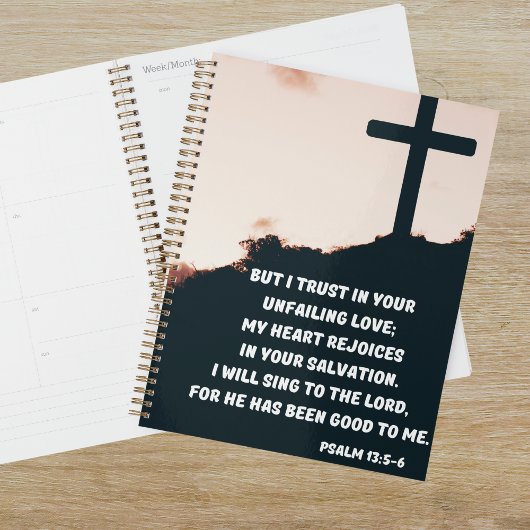 Week/Month
BUT I TRUST IN YOUR
UNFAILING LOVE;
MY HEART REJOICES
IN YOUR SALVATION.
I WILL SING TO THE LORD,
FOR HE HAS BEEN GOOD TO ME.
PSALM 13:5-6